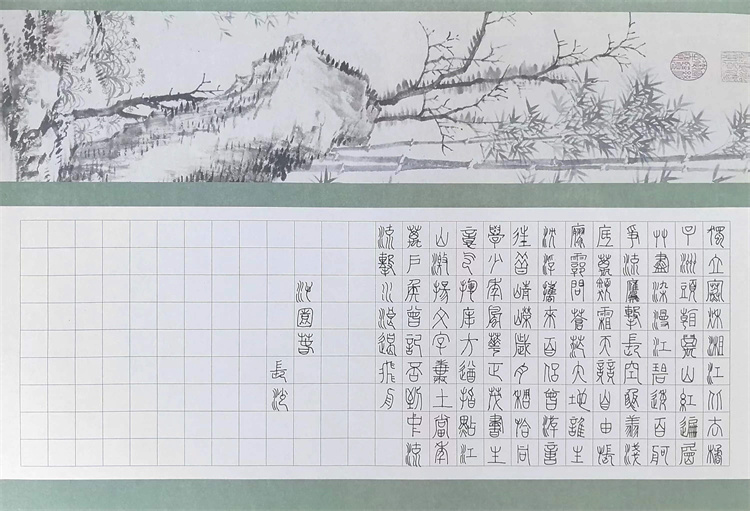 獨立寒秋湘江北去橘
子洲頭看萬山紅遍層
林盡染漫江碧透百舸
爭流鷹擊長空魚翔淺
底萬類霜天競自由悵
寥廓問蒼茫大地誰主
沈浮攜來百侶曾游憶
往昔崢嶸歲月稠恰同
學少年風華正茂書生
意氣揮斥方遒指點江
山激揚文字糞土當年
萬戶侯曾記否到中流
流擊水浪遏飛舟
沁園春
長沙